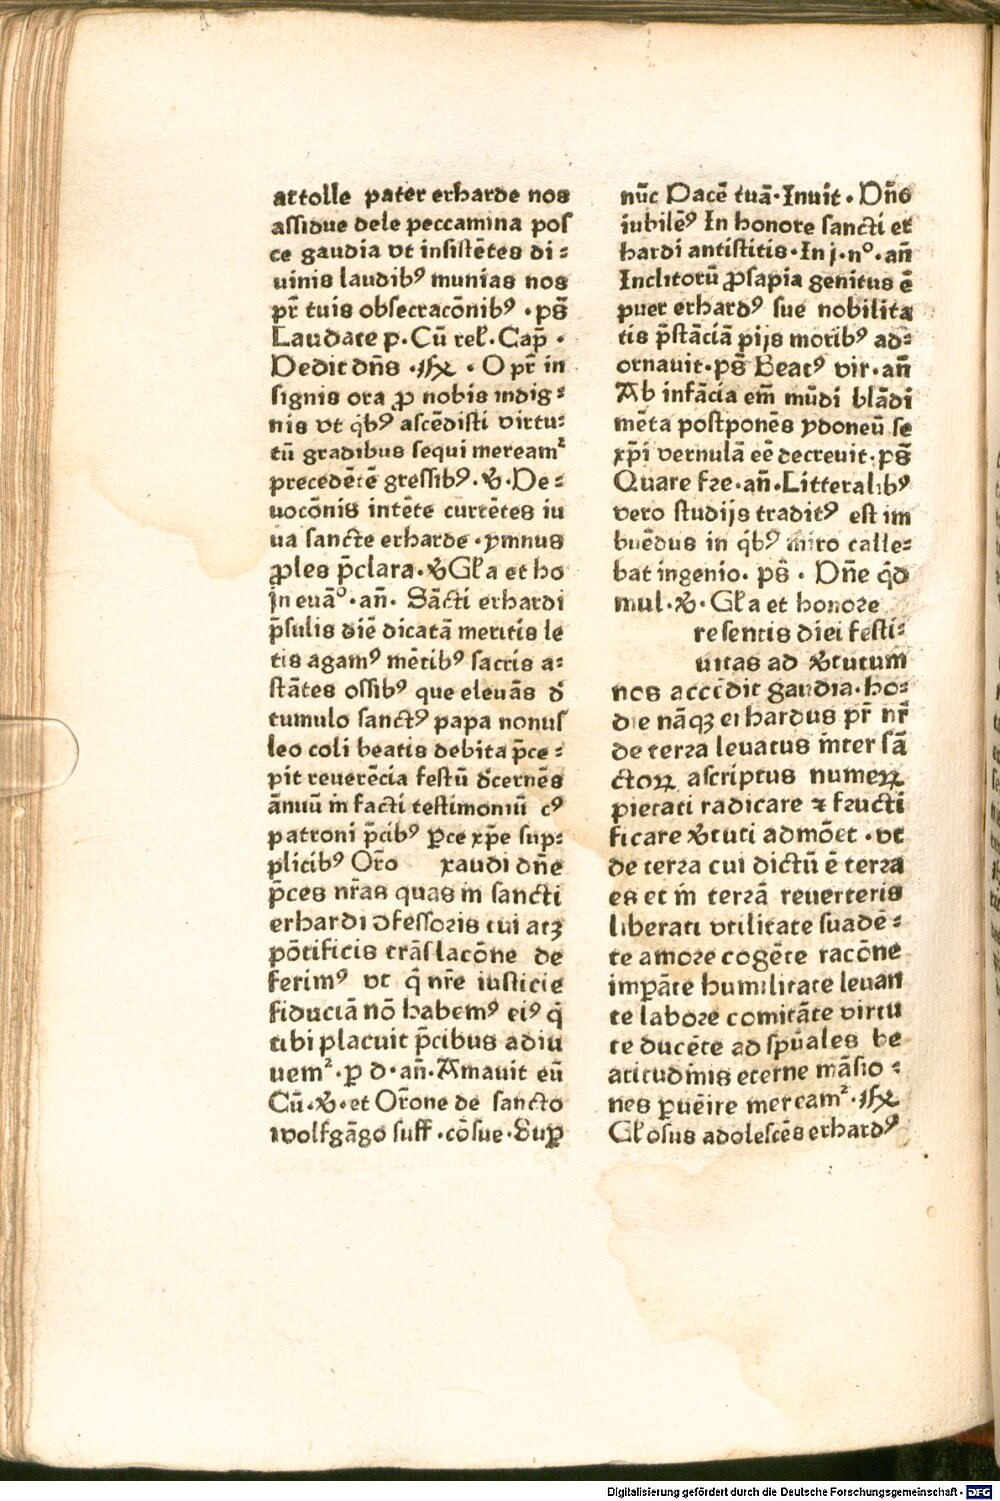 attolle pater erharde nos
assidue dele peccamina pos
ce gaudia vt insistētes di⸗
uinis laudibꝰ munias nos
pr̄ tuis obsecracōnibꝰ · ps̄
Laudate p · Cū rel̉ · Cap̄ ·
Dedit dn̄s · · O pr̄ in
signis ora ꝓ nobis indig⸗
nis vt q̇bꝰ ascēdisti virtu⸗
tū gradibus sequi meream̉
precedētē gressibꝰ · ℣ · De⸗
uocōnis intēte currētes iu
ua sancte erharde · ymnus
ꝓles p̄clara · ℣ Gl̉a et ho
Jn euāº · an̄ · Sācti erhardi
p̄sulis diē dicatā meritis le
tis agamꝰ mētibꝰ sacris a⸗
stātes ossibꝰ que eleuās d̉
tumulo sanctꝰ papa nonus
leo coli beatis debita p̄ce⸗
pit reuerēcia festū d̉cernēs
ānuū in facti testimoniū cꝰ
patroni p̄cibꝰ ꝑce xp̄e sup⸗
plicibꝰ Or̄o xaudi dn̄e
p̄ces nr̄as quas in sancti
erhardi ↄfessoris tui atꝫ
pōtificis trās lacōne de
ferimꝰ vt q̇ nr̄e iusticie
fiduciā nō habemꝰ eiꝰ q̇
tibi placuit p̄cibus adiu
uem̉ · ꝑ d · an̄ · Amauit eū
Cū · ℣ · et Or̄one de sancto
wolfgāgo suff̄ · cōsue · Suꝑ
nūc Pacē tuā · Inuit · Dn̄o
iubilēꝰ In honore sancti er
hardi antistitis · In j · nº · an̄
Inclitorū ꝓsapia genitus ē
puer erhardꝰ sue nobilita
tis p̄stāciā pijs moribꝰ ad⸗
ornauit · ps̄ Beatꝰ vir · an̄
Ab infācia em̄ mūdi blādi
mēta postponēs ydoneū se
xp̄i vernulā eē decreuit · ps̄
Quare fre · an̄ · Litteralibꝰ
vero studijs traditꝰ est im
buēdus in q̇bꝰ miro calle⸗
bat ingenio · ps̄ · Dn̄e q̇d
mul · ℣ · Gl̉a et honore
resentis diei festi⸗
uitas ad v̉tutum
nos accēdit gaudia · ho⸗
die nāqꝫ erhardus pr̄ nr̄
de terra leuatus inter sā
ctoꝝ ascriptus numeꝝ
pietati radicare ⁊ fructi
ficare v̉tuti admōet · vt
de terra cui dictū ē terra
es et in terrā reuerteris
liberati vtilitate suadē⸗
te amore cogēte racōne
imꝑāte humilitate leuan
te labore comitāte virtu
te ducēte ad spūales be
atitudinis eterne māsio⸗
nes ꝑuēire meream̉ ·
Gl̉osus adolescēs erhardꝰ
Digitalisierung gefördert durch die Deutsche Forschungsgemeinschaft - DFG